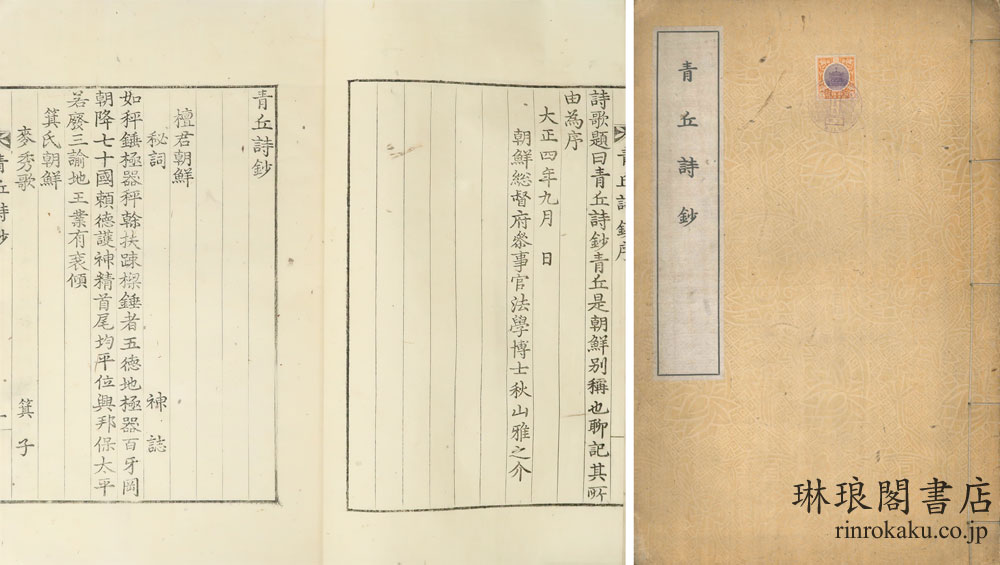 青丘詩鈔
詩歌題曰青丘詩鈔青丘是朝鮮別稱也聊記其所
由為序
大正四年九月 日
朝鮮総督府參事官法學博士秋山雅之介
青丘詩鈔序
青丘詩鈔
檀君朝鮮
秘詞 神誌
如秤錘極器秤幹扶踈樑錘者五徳地極器百牙岡
朝降七十國頼徳護神精首尾均平位興邦保太平
若廢三諭地王業有衰傾
箕氏朝鮮
麥秀歌 箕子
青丘詩鈔
一
琳琅閣書店
rinrokaku.co.jp